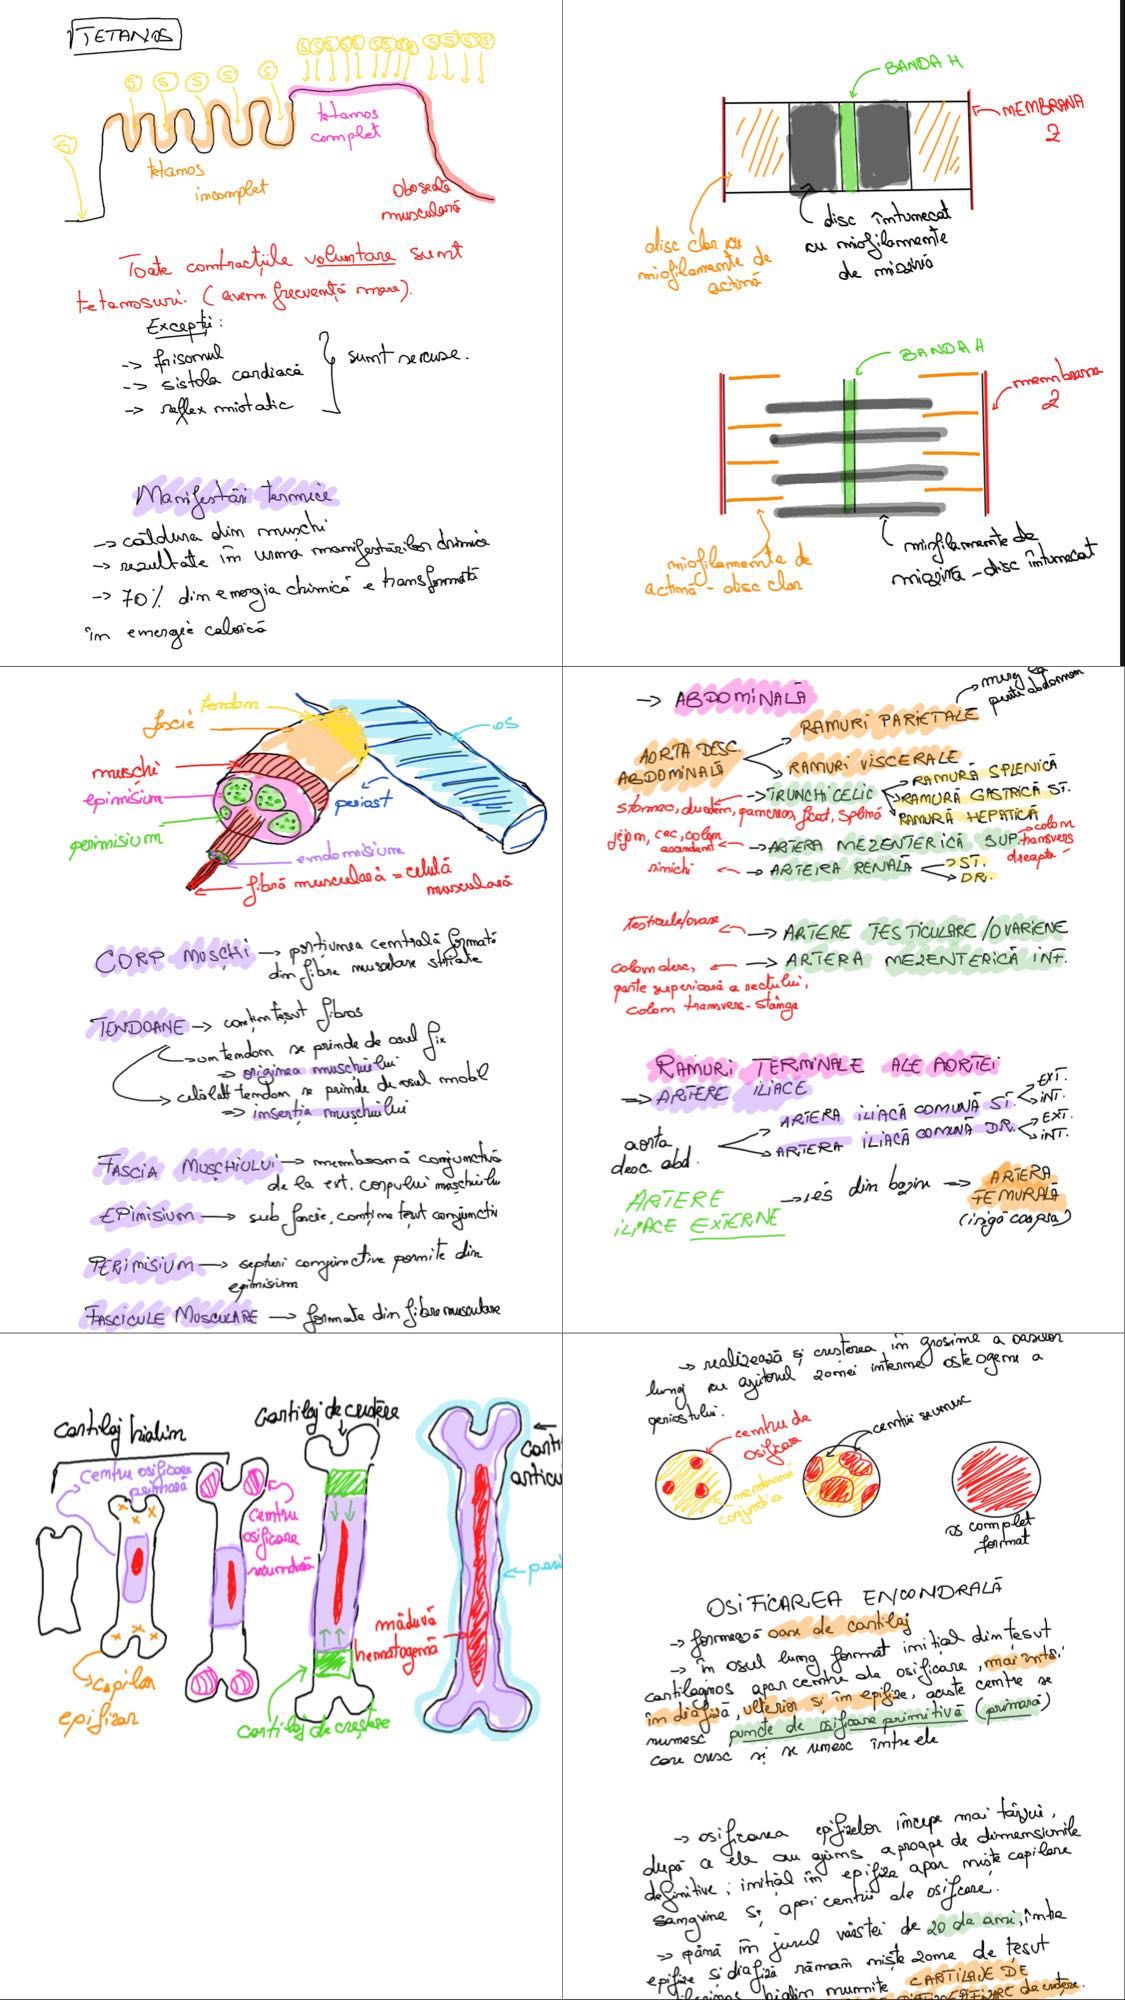 TETANOS
S S S S S S
S S S S S S S S S S S S S
tetanos
complet
tetanos
incomplet
Oboseală
musculară
Toate contracțiile voluntare sunt
tetanosuri. (avem frecvență mare).
Excepții:
-> frisonul
-> sistola cardiacă
-> reflex miotatic
sunt secuse.
Manifestări termice
-> căldura din mușchi
-> rezultate în urma manifestărilor chimice
-> 70% din energia chimică e transformată
în energie calorică
BANDA H
MEMBRANA
Z
disc clar cu
miofilamente de
actină
disc întunecat
cu miofilamente
de miozină
BANDA H
membrana
Z
miofilamente de
actină - disc clar
miofilamente de
miozină - disc întunecat
tendon
fascie
os
mușchi
epimisium
perimisium
periost
endomisium
fibră musculară = celulă
musculară
CORP MUȘCHI -> porțiunea centrală formată
din fibre musculare striate
TENDOANE -> conțin țesut fibros
-> un tendon se prinde de osul fix
=> originea mușchiului
-> celălalt tendon se prinde de osul mobil
=> inserția mușchiului
FASCIA MUȘCHIULUI -> membrană conjunctivă
de la ext. corpului mușchiului
EPIMISIUM -> sub fascie, conține țesut conjunctiv
PERIMISIUM -> septuri conjunctive pornite din
epimisium
FASCICULE MUSCULARE -> formate din fibre musculare
-> ABDOMINALĂ
abdomen
AORTA DESC.
ABDOMINALĂ
RAMURI PARIETALE
RAMURI VISCERALE
-> TRUNCHI CELIC
RAMURĂ SPLENICĂ
RAMURĂ GASTRICĂ ST.
RAMURĂ HEPATICĂ
stomac, duoden, pancreas, ficat, splină
jejun, cec, colon
ascendent
-> ARTERA MEZENTERICĂ SUP.
colon
transvers
dreapta
rinichi
-> ARTERA RENALĂ -> ST.
DR.
testicule/ovare
-> ARTERE TESTICULARE/OVARIENE
-> ARTERA MEZENTERICĂ INF.
colon desc,
parte superioară a rectului,
colon transvers - stânga
RAMURI TERMINALE ALE AORTEI
=> ARTERE ILIACE
aorta
desc abd.
ARTERA ILIACĂ COMUNĂ ST. EXT.
INT.
ARTERA ILIACĂ COMUNĂ DR. EXT.
INT.
ARTERE
ILIACE EXTERNE
-> ies din bazin => ARTERA
FEMURALĂ
(irigă coapsa)
Cartilaj hialin
Cartilaj de creștere
centru osificare
primară
centru
osificare
secundară
capilar
epifizar
măduvă
hematogenă
cartilaj de creștere
-> realizează și creșterea în grosime a oaselor
lungi cu ajutorul zonei interne osteogene a
periostului.
centru de
osificare
membrană
conjunctivă
os complet
format
OSIFICAREA ENCONDRALĂ
-> formează oase de cartilaj
-> în osul lung format inițial din țesut
cartilaginos apar centre de osificare, mai întâi
în diafiză, ulterior și în epifize, aceste centre se
numesc puncte de osificare primitivă (primară)
care cresc și se unesc între ele
-> osificarea epifizelor începe mai târziu,
după ce ele au ajuns aproape de dimensiunile
definitive; inițial în epifize apar niște capilare
sangvine și apoi centrii de osificare.
-> până în jurul vârstei de 20 de ani, între
epifize și diafiză rămân niște zone de țesut
hialin numite CARTILAJE DE
de creștere.